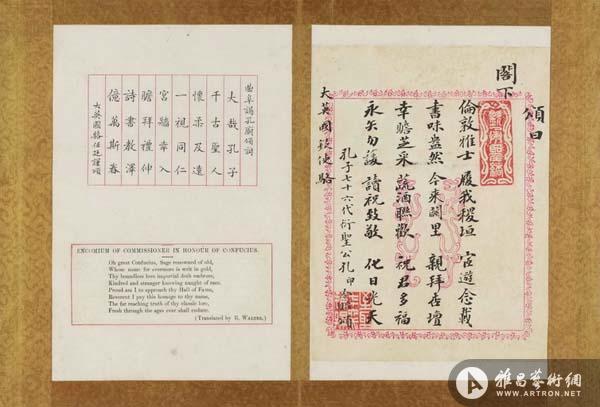 曲阜謁孔廟頌詞
大哉孔子
千古聖人
懷柔及遠
一視同仁
宮牆幸入
瞻拜禮伸
詩書教澤
億萬斯春
大英國駱任廷謹頌
ENCOMIUM OF COMMISSIONER IN HONOUR OF CONFUCIUS.
Oh great Confucius, Sage renowned of old,
Whose name for evermore is writ in gold,
Thy boundless love impartial doth embrace,
Kindred and stranger knowing naught of race.
Proud am I to approach thy Hall of Fame,
Reverent I pay this homage to thy name,
The far reaching truth of thy classic lore,
Fresh through the ages ever shall endure.
(Translated by R. WALTER.)
頌曰
閣下
倫敦雅士 履我稷垣 宦遊念載
書味盎然 今來闕里 親拜杏壇
幸瞻芝采 蔬酒聯歡 祝君多福
永矢勿諼 讀祝致敬 化日光天
孔子七十六代衍聖公孔 頌
大英國欽使駱
雅昌藝術網
WWW.ARTRON.NET